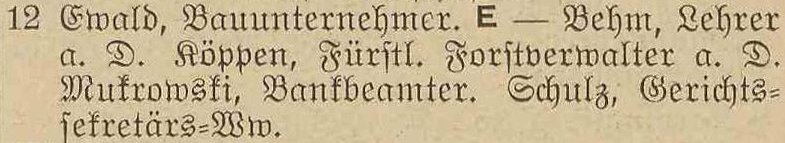 12 Ewald, Bauunternehmer. E — Behm, Lehrer
a. D. Köppen, Fürstl. Forstverwalter a. D.
Mukrowski, Bankbeamter. Schulz, Gerichts-
sekretärs-Ww.